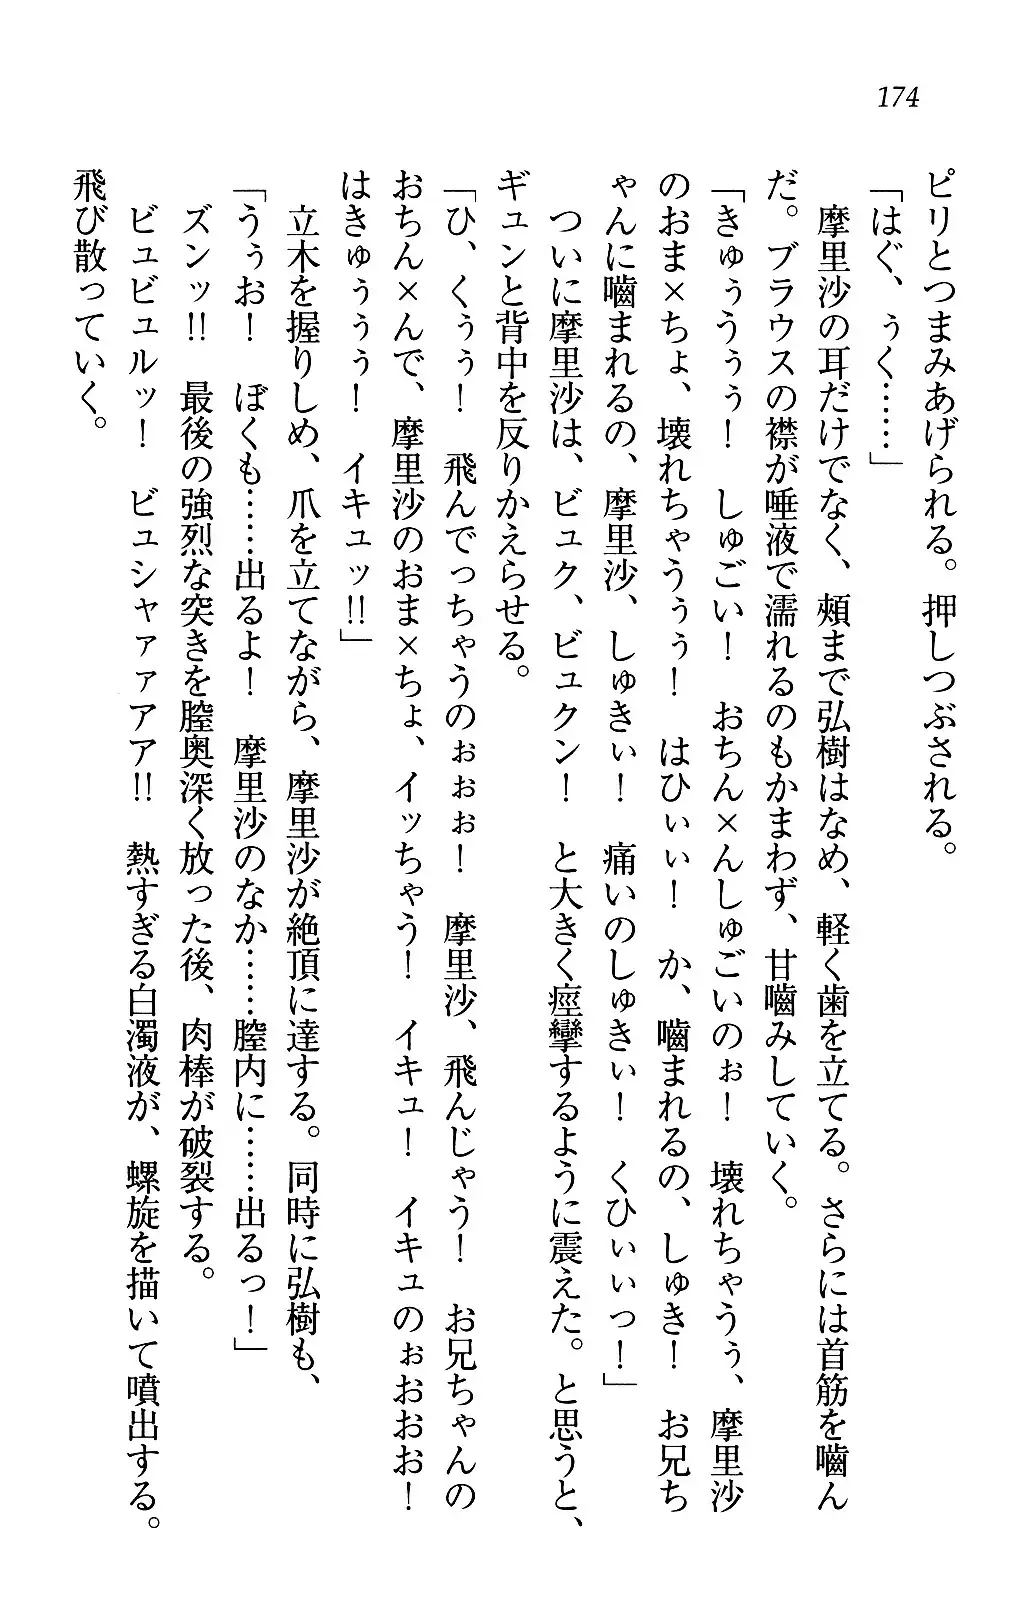 174
ピリとつまみあげられる。押しつぶされる。
「はぐ、ぅく……」
摩里沙の耳だけでなく、頬まで弘樹はなめ、軽く歯を立てる。さらには首筋を嚙ん
だ。ブラウスの襟が唾液で濡れるのもかまわず、甘嚙みしていく。
「きゅぅうぅぅ！　しゅごい！　おちん×んしゅごいのぉ！　壊れちゃうぅ、摩里沙
のおま×ちょ、壊れちゃうぅぅ！　はひぃぃ！　か、嚙まれるの、しゅき！　お兄ち
ゃんに嚙まれるの、摩里沙、しゅきぃ！　痛いのしゅきぃ！　くひぃぃっ！」
ついに摩里沙は、ビュク、ビュクン！　と大きく痙攣するように震えた。と思うと、
ギュンと背中を反りかえらせる。
「ひ、くぅぅ！　飛んでっちゃうのぉぉぉ！　摩里沙、飛んじゃう！　お兄ちゃんの
おちん×んで、摩里沙のおま×ちょ、イッちゃう！　イキュ！　イキュのぉおおお！
はきゅぅぅぅ！　イキュッ!!」
立木を握りしめ、爪を立てながら、摩里沙が絶頂に達する。同時に弘樹も、
「うぅお！　ぼくも……出るよ！　摩里沙のなか……膣内に……出るっ！」
ズンッ!!　最後の強烈な突きを膣奥深く放った後、肉棒が破裂する。
ビュビュルッ！　ビュシャァァアア!!　熱すぎる白濁液が、螺旋を描いて噴出する。
飛び散っていく。